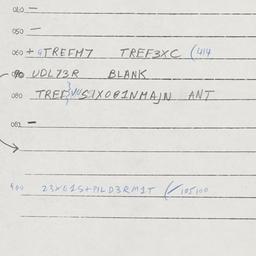 020 —
050 —
060 + GTREFM7 TREF3XC (414
070 UDL73R BLANK
080 TREE SIXO@1NMAJN ANT
081 —
400 23XG1S+PILD3RM1T (105100